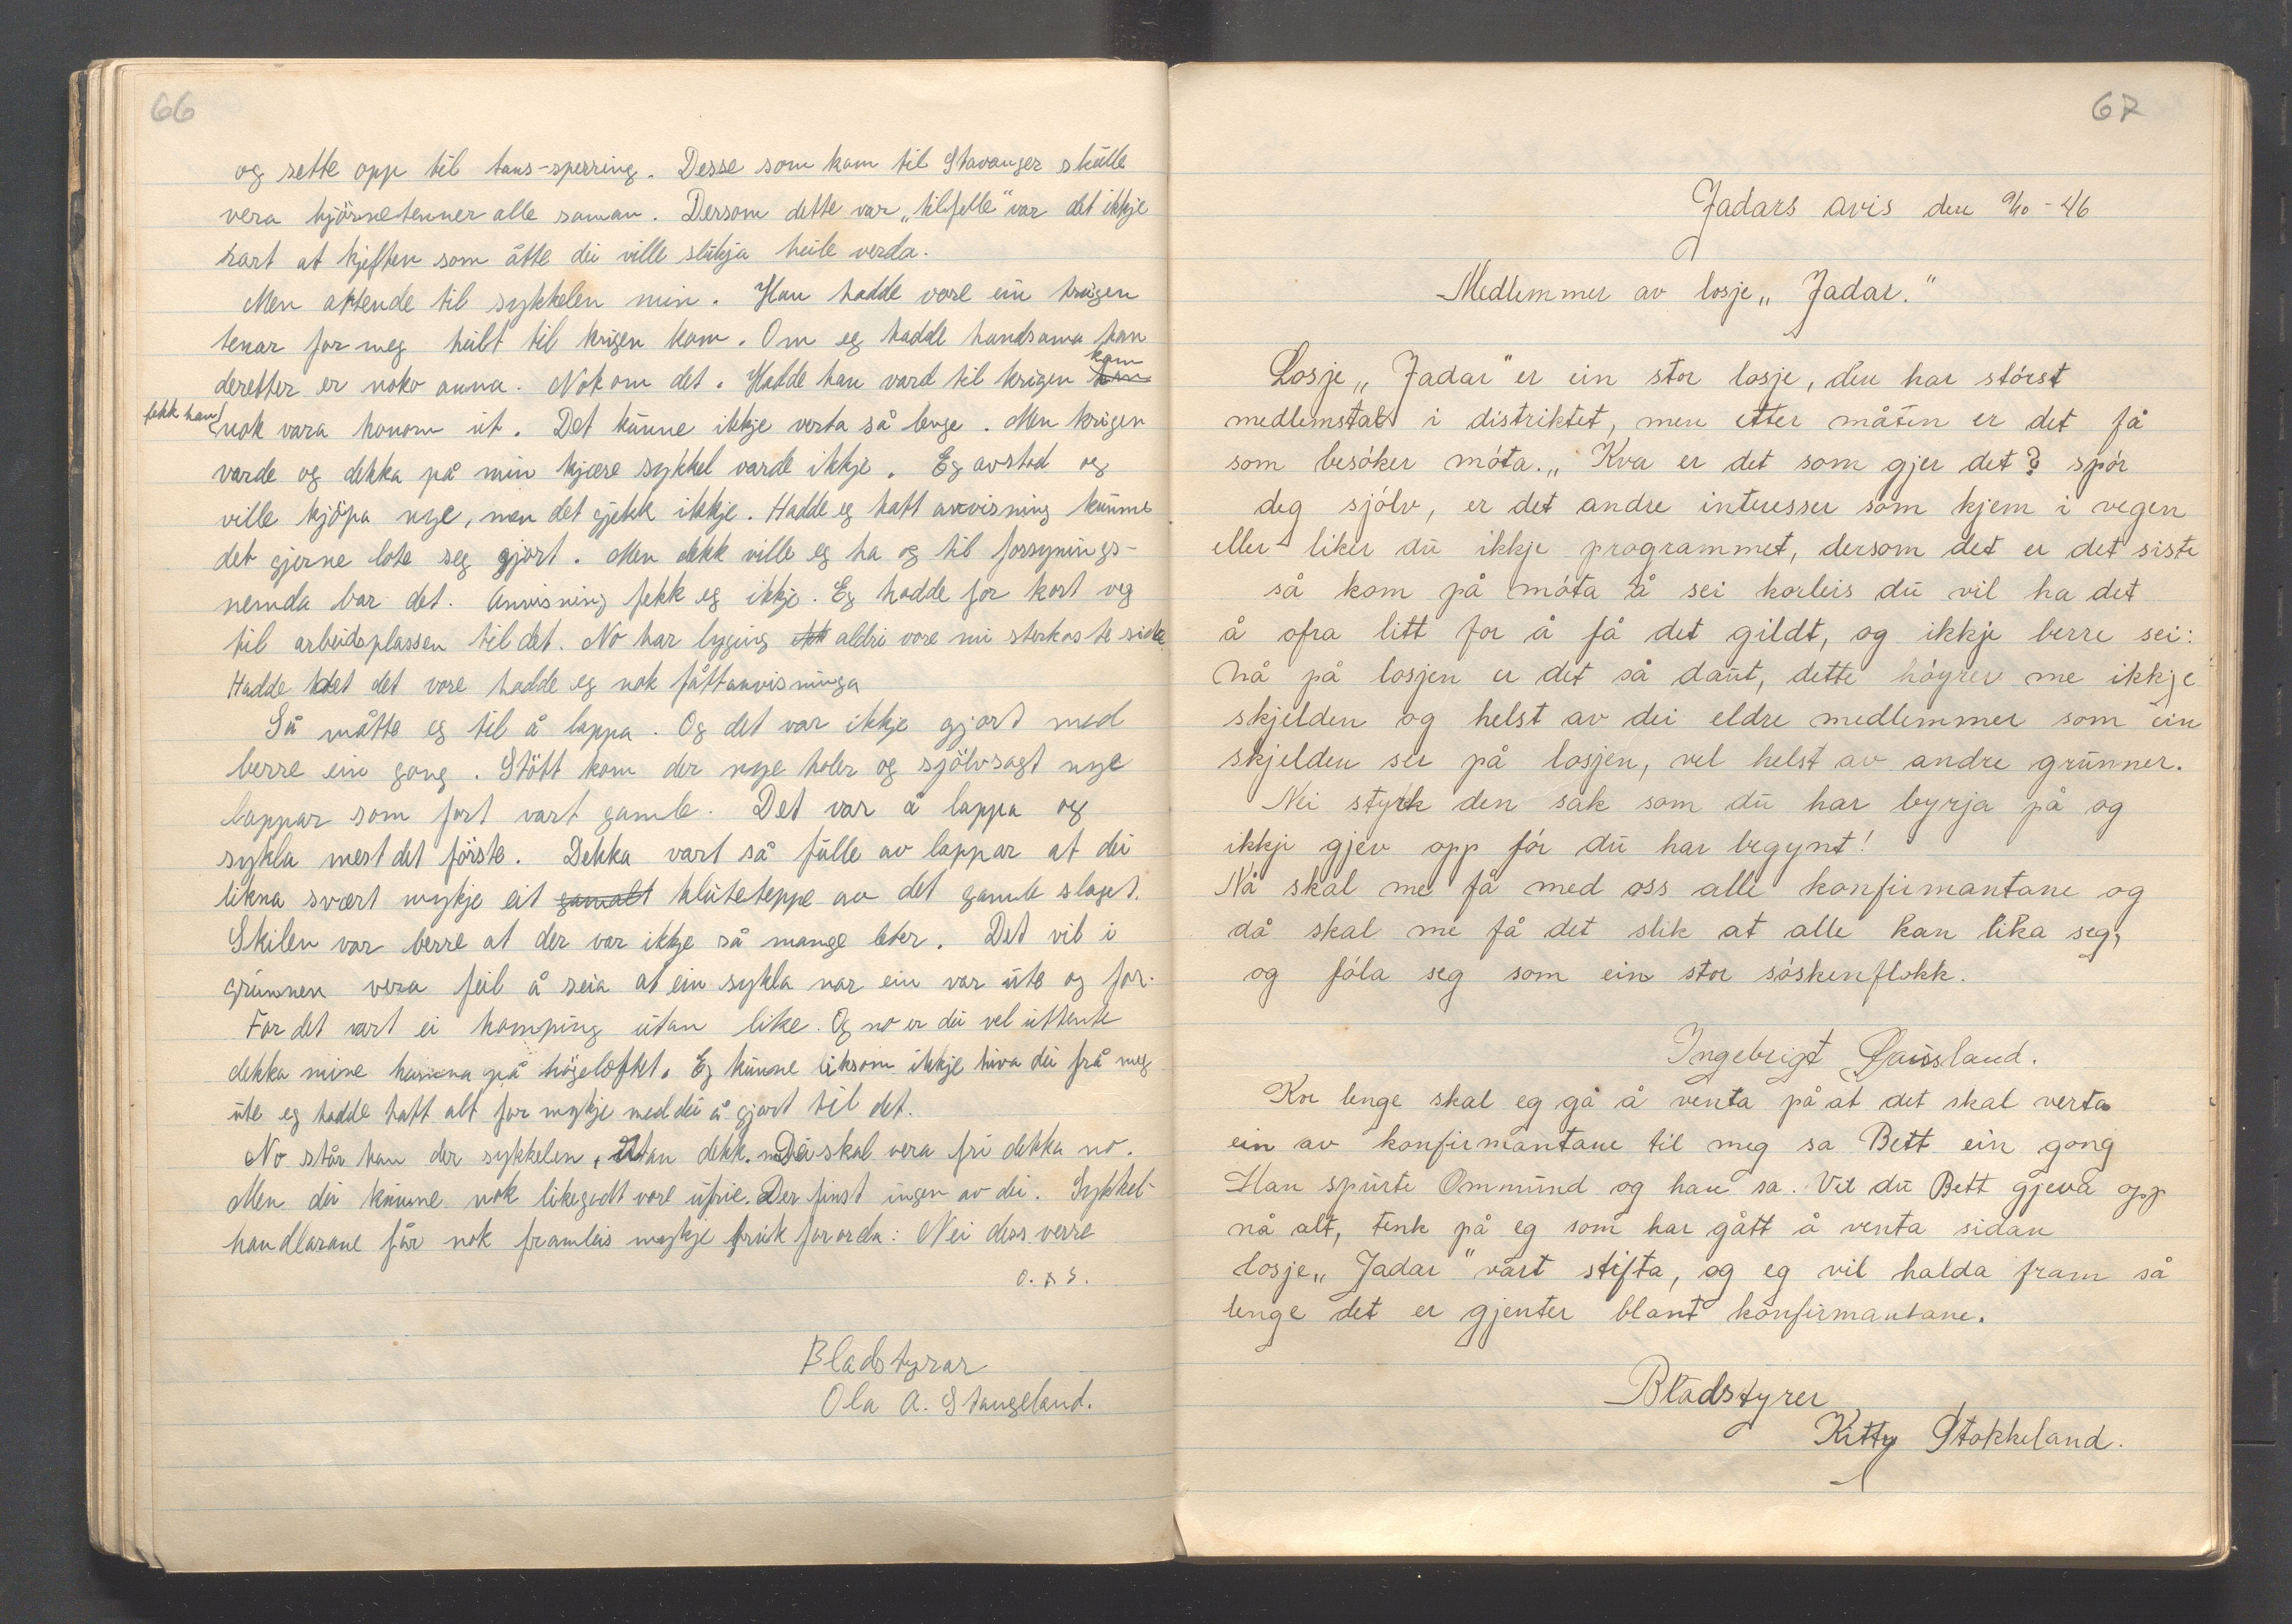 66
og sette opp til tans-sperring. Desse som kom til Stavanger skulle
vera hjörnetenner alle saman. Dersom dette var „tilfelle" var det ikkje
rart at kjeften som åtte dei ville slukja heile verda.
Men attende til sykkelen min. Han hadde vore ein trugen
tenar for meg heilt til krigen kom. Om eg hadde handsama han
deretter er noko anna. Nok om det. Hadde han vard til krigen kom
fekk han nok vara honom ut. Det kunne ikkje verta så lenge. Men krigen
varde og dekka på min kjære sykkel varde ikkje. Eg avstod og
ville kjöpa nye, men det gjekk ikkje. Hadde eg hatt anvisning kunne
det gjerne lote seg gjort. Men dekk ville eg ha og til forsynings-
nemda bar det. Anvisning fekk eg ikkje. Eg hadde for kort veg
til arbeidsplassen til det. No har lyging aldri vore mi sterkaste side.
Hadde det vore hadde eg nok fått anvisninga
Så måtte eg til å lappa. Og det var ikkje gjort med
berre ein gong. Stött kom der nye holer og sjölvsagt nye
lappar som fort vart gamle. Det var å lappa og
sykla mest det förste. Dekka vart så fulle av lappar at dei
likna svært mykje eit gamalt kluteteppe av det gamle slaget.
Skilen var berre at der var ikkje så mange leter. Det vil i
grunnen vera feil å seia at ein sykla nar ein var ute og for.
For det vart ei homping utan like. Og no er dei vel uttente
dekka mine på högeloftet. Eg kunne liksom ikkje hiva dei frå meg
ute eg hadde hatt alt for mykje med dei å gjort til det.
No står han der sykkelen, utan dekk. Dei skal vera fri dekka no.
Men dei kunne nok likegodt vore ufrie. Der finst ingen av dei. Sykkel-
handlarane får nok framleis mykje bruk for orda: Nei dess verre
O. A S.
Bladstyrar
Ola A. Stangeland.
67
Jadars avis den 9/10 - 46
Medlemmer av losje „Jadar."
Losje „Jadar" er ein stor losje, den har störst
medlemstal i distriktet, men etter måten er det få
som besöker möta. „Kva er det som gjer det? spör
deg sjölv, er det andre interesser som kjem i vegen
eller liker du ikkje programmet, dersom det er det siste
så kom på möta å sei korleis du vil ha det
å ofra litt for å få det gildt, og ikkje berre sei:
nå på losjen er det så daut, dette höyrer me ikkje
skjelden og helst av dei eldre medlemmer som ein
skjelden ser på losjen, vel helst av andre grunner.
Nei styrk den sak som du har byrja på og
ikkje gjev opp för du har begynt!
Nå skal me få med oss alle konfirmantane og
då skal me få det slik at alle kan lika seg,
og föla seg som ein stor söskenflokk.
Ingebrigt Gausland.
Kor lenge skal eg gå å venta på at det skal verta
ein av konfirmantane til meg sa Bett ein gong
Han spurte Ommund og han sa. Vil du Bett gjeva opp
nå alt, tenk på eg som har gått å venta sidan
losje „Jadar" vart stifta, og eg vil halda fram så
lenge det er gjenter blant konfirmantane.
Bladstyrer
Kitty Stokkeland.